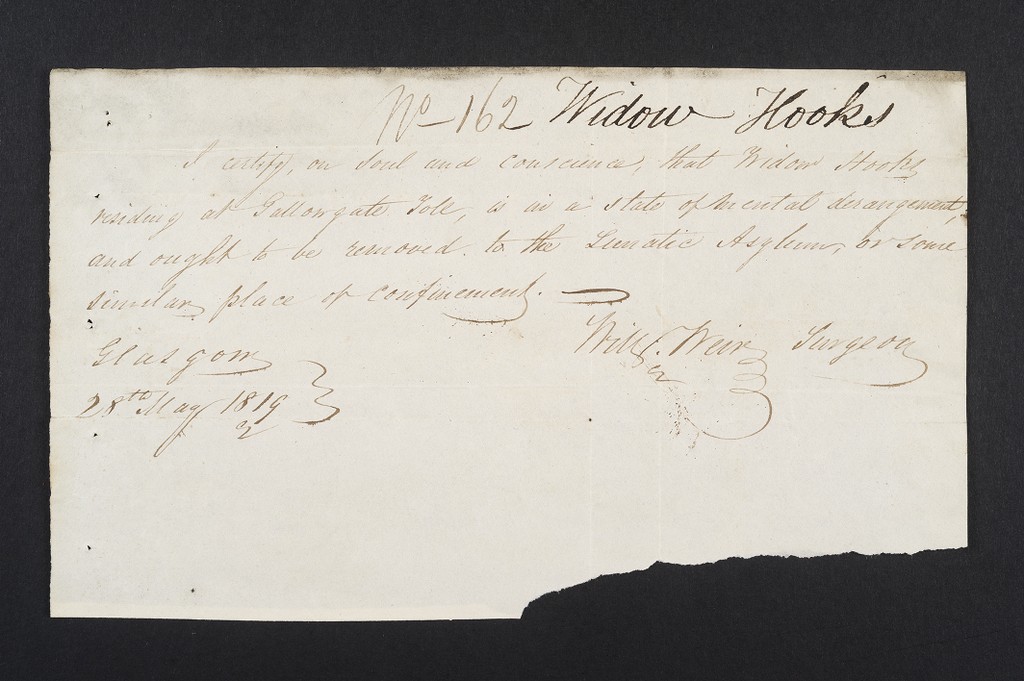 No 162 Widow Hooks
I certify, on Soul and Conscience, that Widow Hooks
residing at Gallowgate Toll, is in a state of mental derangement,
and ought to be removed to the Lunatic Asylum, or some
similar place of confinement.
Willm. Weir Surgeon
Glasgow
28th May 1819